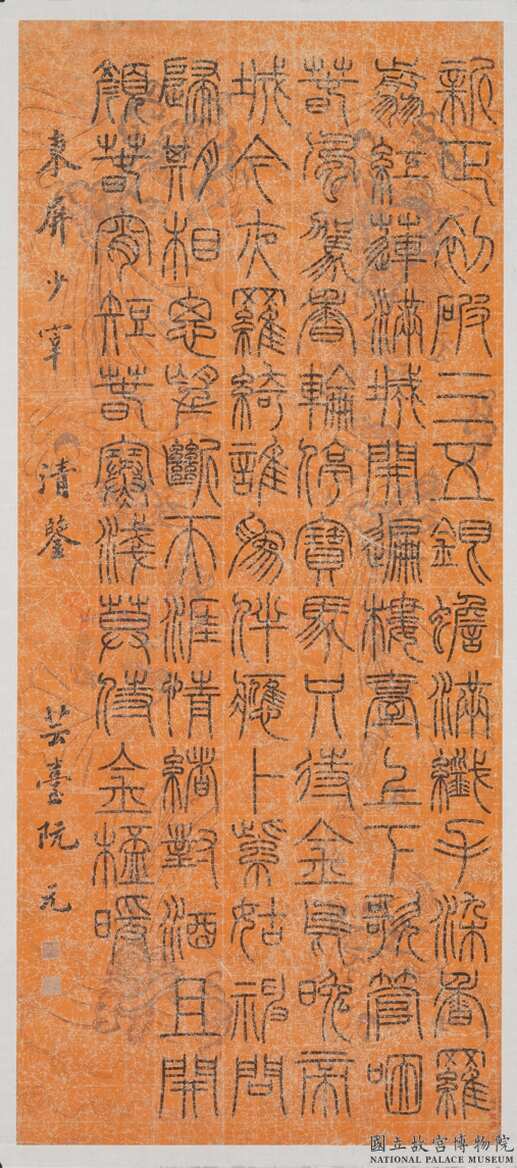 新正初破三五銀蟾滿纖手染香羅
翦紅蓮滿城開遍樓臺上下歌管咽
春風駕香輪停寶馬只待金烏晚帝
城今夜羅綺誰為伴應卜紫姑神問
歸期相思望斷天涯情緒對酒且開
顏春宵短春寒淺莫待金杯暖
東屏少宰 清鑒 芸臺阮元
國立故宮博物院
NATIONAL PALACE MUSEUM